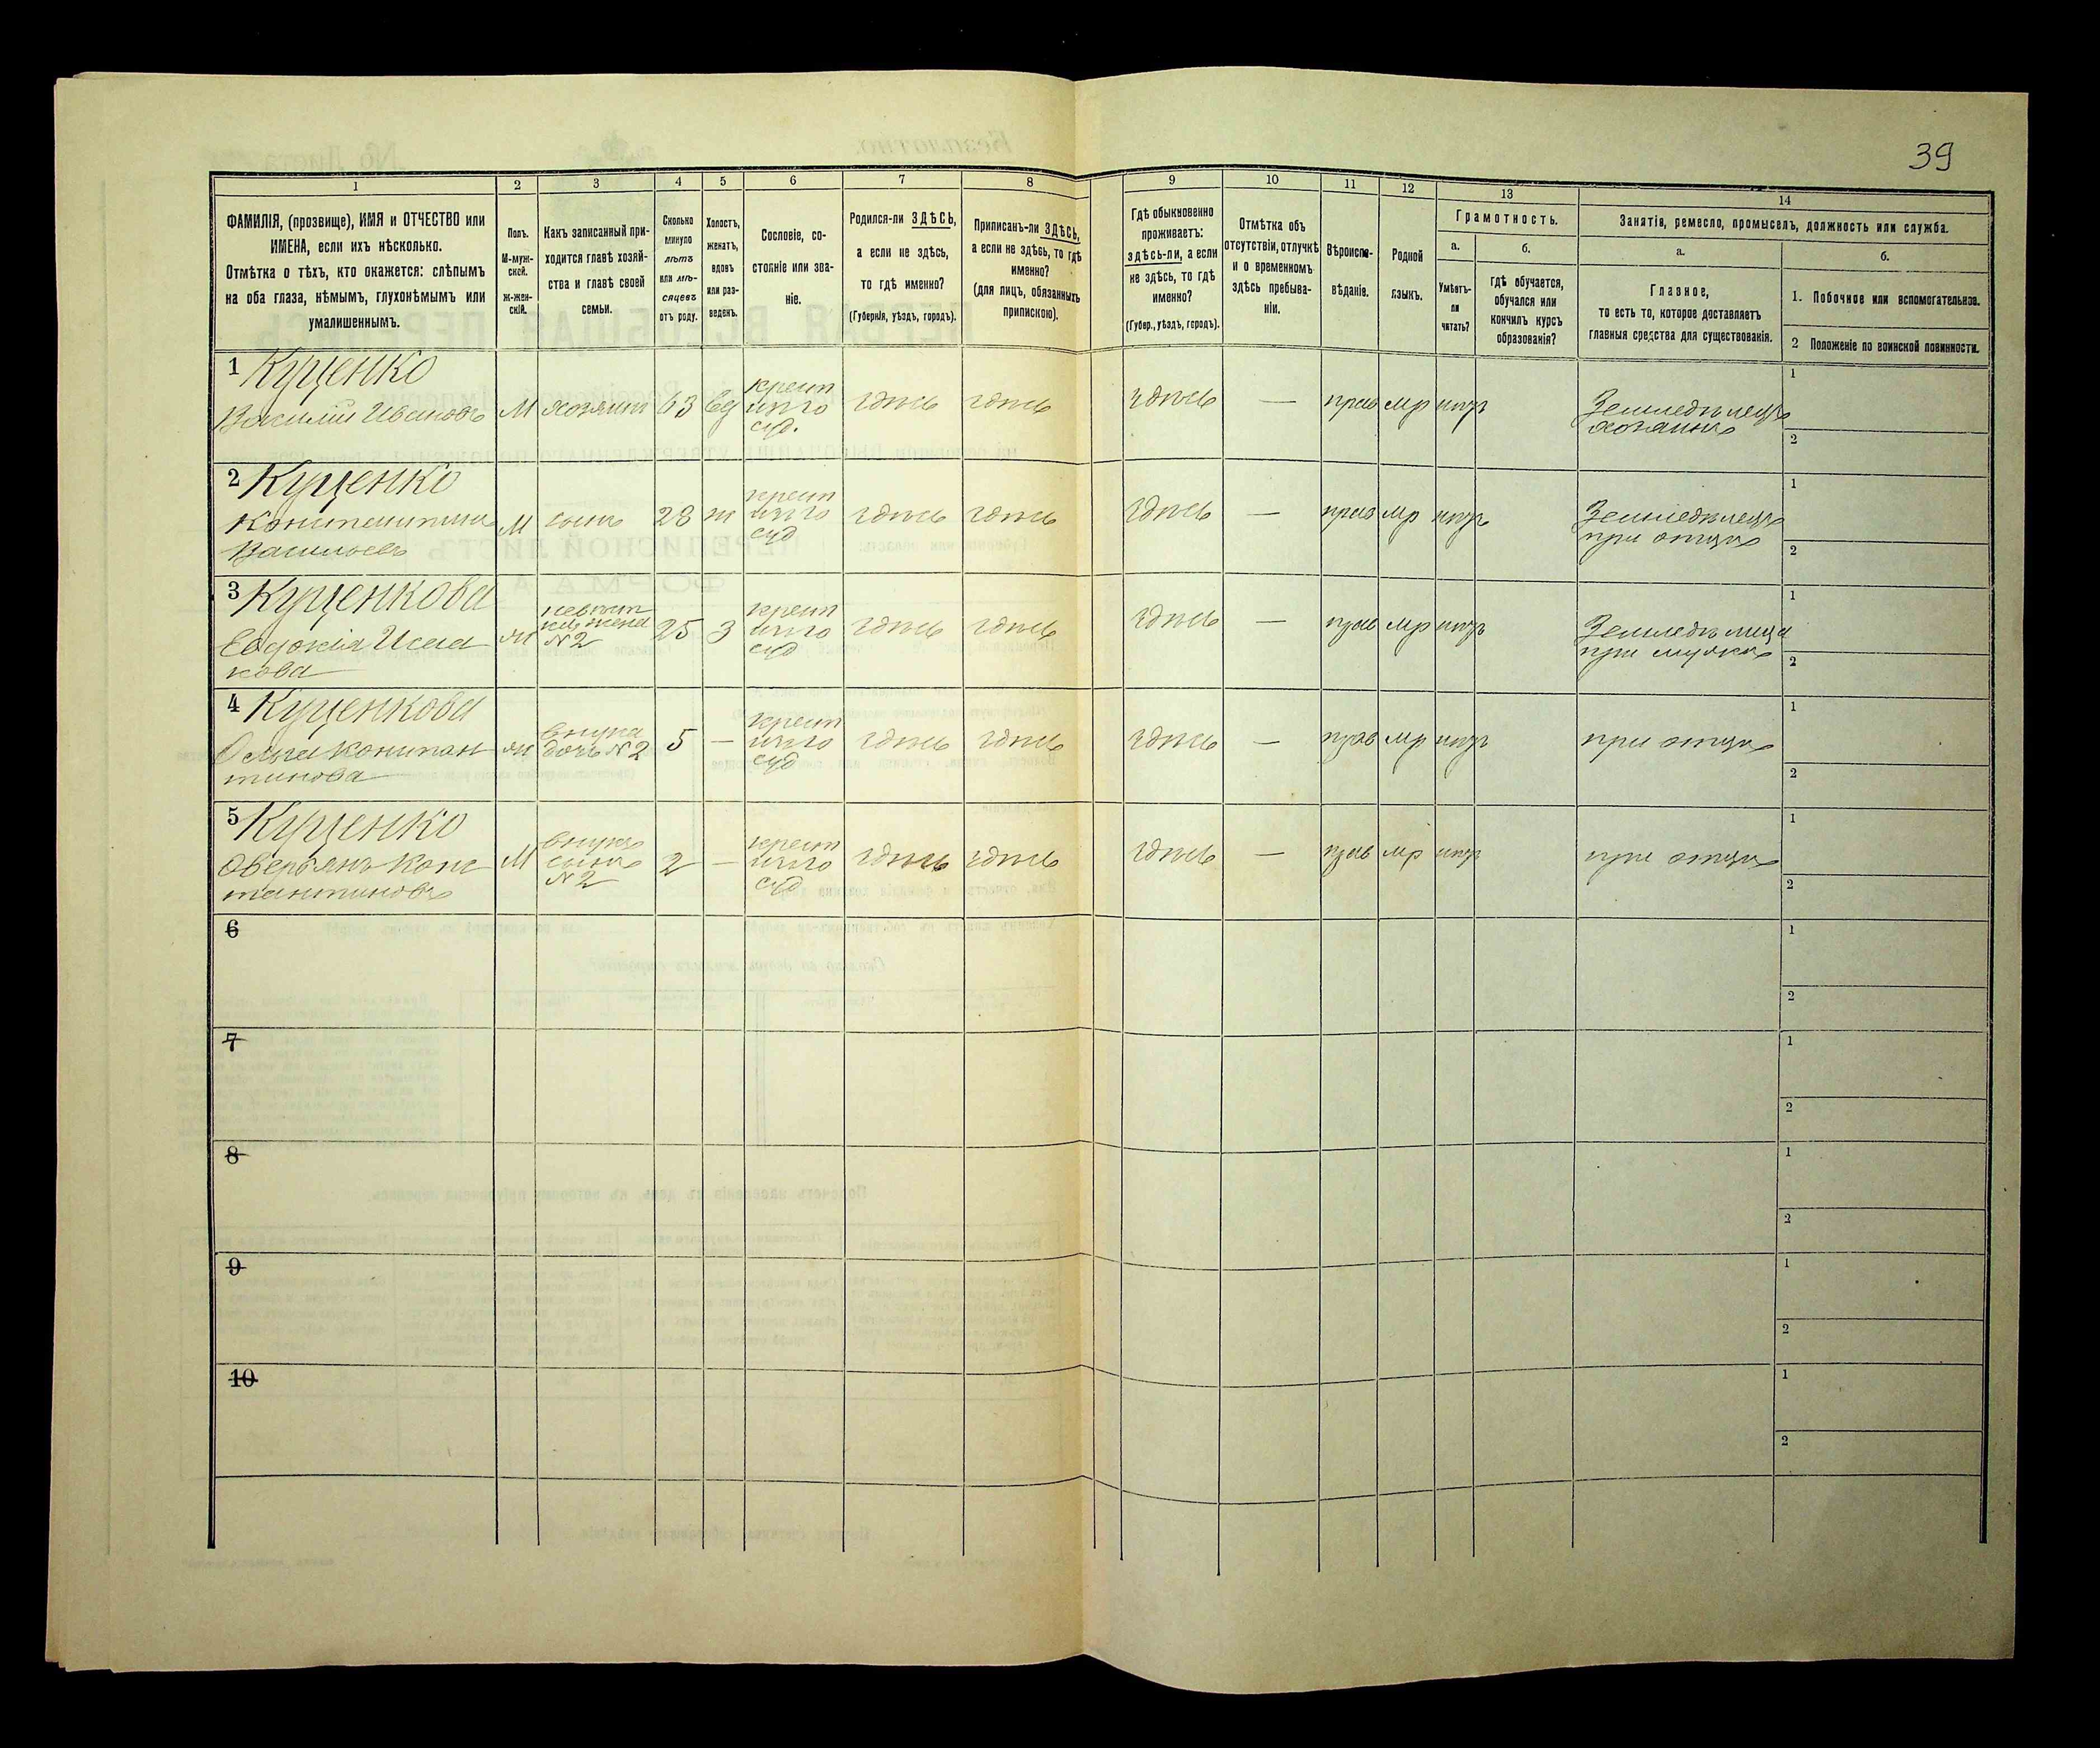 39
1 2 3 4 5 6 7 8 9 10 11 12 13 14
ФАМИЛІЯ, (прозвище), ИМЯ и ОТЧЕСТВО или
ИМЕНА, если ихъ нѣсколько.
Отмѣтка о тѣхъ, кто окажется: слѣпымъ
на оба глаза, нѣмымъ, глухонѣмымъ или
умалишеннымъ.
Полъ.
М-муж-
ской.
Ж-жен-
скій.
Какъ записанный при-
ходится главѣ хозяй-
ства и главѣ своей
семьи.
Сколько
минуло
лѣтъ
или мѣ-
сяцевъ
отъ роду.
Холостъ,
женатъ,
вдовъ
или раз-
веденъ.
Сословіе, со-
стояніе или зва-
ніе.
Родился-ли ЗДѢСЬ,
а если не здѣсь,
то гдѣ именно?
(Губернія, уѣздъ, городъ).
Приписанъ-ли ЗДѢСЬ,
а если не здѣсь, то гдѣ
именно?
(для лицъ, обязанныхъ
припискою).
Гдѣ обыкновенно
проживаетъ:
здѣсь-ли, а если
не здѣсь, то гдѣ
именно?
(Губер., уѣздъ, городъ).
Отмѣтка объ
отсутствіи, отлучкѣ
и о временномъ
здѣсь пребыва-
ніи.
Вѣроиспо-
вѣданіе.
Родной
языкъ.
Грамотность.
а.
Умѣетъ-
ли
читать?
б.
гдѣ обучается,
обучался или
кончилъ курсъ
образованія?
Занятія, ремесло, промыселъ, должность или служба.
а.
Главное,
то есть то, которое доставляетъ
главныя средства для существованія.
б.
1. Побочное или вспомогательное.
2 Положеніе по воинской повинности.
1 Куценко
Василій Ивановъ
М
хозяинъ
63
вд
крест
суд.
здѣсь
здѣсь
здѣсь
—
прав
мр
Земледѣлецъ
хозяинъ
1
2
2 Куценко
Константинъ
Васильевъ
М
сынъ
28
ж
крест
суд
здѣсь
здѣсь
здѣсь
—
прав
мр
Земледѣлецъ
при отцѣ
1
2
3 Куценкова
Евдокія Исаа
кова
ж
невѣст
жена
№2
25
З
крест
суд
здѣсь
здѣсь
здѣсь
—
прав
мр
Земледѣлица
при мужѣ
1
2
4 Куценкова
Ольга Констан
тинова
ж
внучка
дочь №2
5
—
крест
суд
здѣсь
здѣсь
здѣсь
—
прав
мр
при отцѣ
1
2
5 Куценко
Оверьянъ Конс
тантиновъ
М
внукъ
сынъ
№2
2
—
крест
суд
здѣсь
здѣсь
здѣсь
—
прав
мр
при отцѣ
1
2
6
1
2
7
1
2
8
1
2
9
1
2
10
1
2